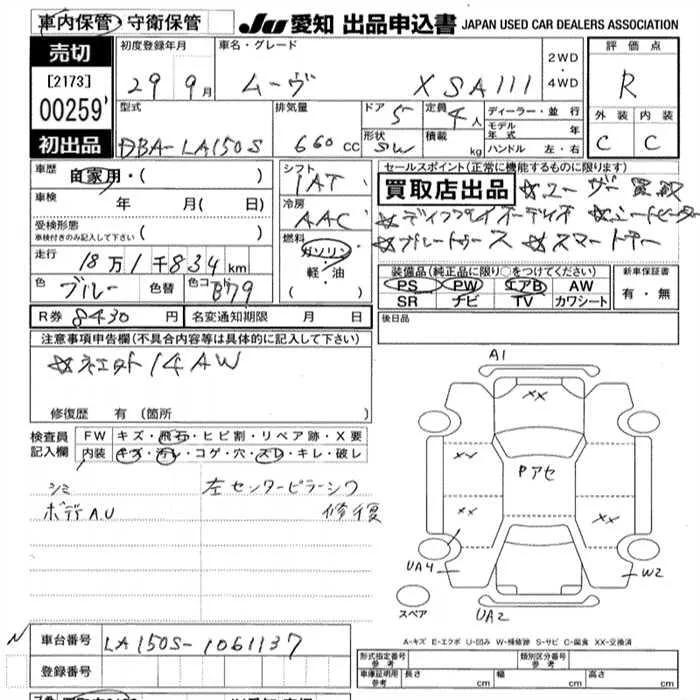 車内保管・守衛保管
JU 愛知 出品申込書 JAPAN USED CAR DEALERS ASSOCIATION
売切
[2173]
00259
初出品
初度登録年月 29年 9月
車名・グレード ムーヴ X SAIII
2WD・4WD
評価点 R
外装 C 内装 C
型式 DBA-LA150S
排気量 660cc
ドア 5 形状 SW
定員 4人 積載 kg
ディーラー・並行
モデル年式 年
ハンドル 左・右
車歴 自家用・( )
車検 年 月( 日)
受検形態
車検付きのみ記入して下さい ( )
走行 18万1千834km
色 ブルー 色替 色コード B79
シフト IAT
冷房 AAC
燃料 ガソリン・軽・油
( )
セールスポイント(正常に機能するものに限ります)
買取店出品 ☆ユーザー買取
☆ディスプレイオーディオ ☆シートヒーター
☆ブルートゥース ☆スマートキー
装備品(純正品に限り○をつけてください)
PS PW エアB AW
SR ナビ TV カワシート
新車保証書
有・無
R券 8430円 名変通知期限 月 日
後日品
注意事項申告欄(不具合内容等は具体的に記入して下さい)
☆社外14AW
修復歴 有 (箇所 )
検査員記入欄
FW キズ・飛石・ヒビ割・リペア跡・X要
内装 キズ・汚レ・コゲ・穴・スレ・キレ・破レ
シミ 左センターピラーシワ
ボデーA.U 修復
A1
XX
XX
Pアセ
XX
XX
UA4
W2
UA2
スペア
A-キズ E-エクボ U-凹み W-補修跡 S-サビ C-腐食 XX-交換済
車台番号 LA150S-1061137
登録番号
形式指定番号 参考
類別区分番号 参考
車庫証明用 参考 長さ cm 幅 cm 高さ cm